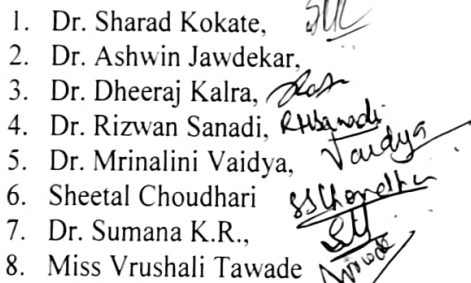 1. Dr. Sharad Kokate,
2. Dr. Ashwin Jawdekar,
3. Dr. Dheeraj Kalra,
4. Dr. Rizwan Sanadi, RHSanadi
5. Dr. Mrinalini Vaidya, Vaidya
6. Sheetal Choudhari SSChoudhari
7. Dr. Sumana K.R.,
8. Miss Vrushali Tawade